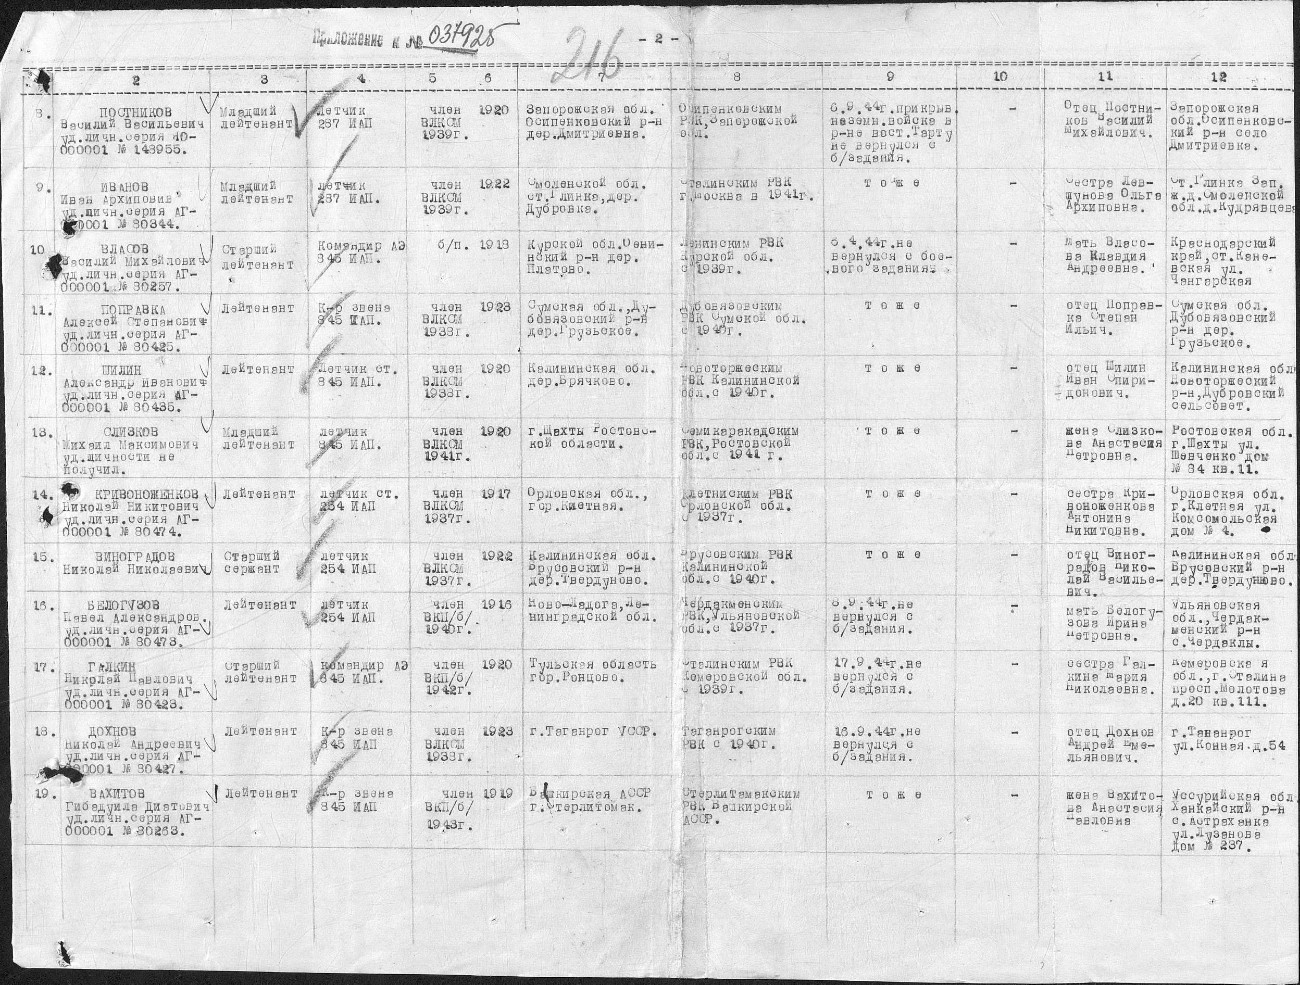 Приложение к № 037925
216
- 2 -
2 3 4 5 6 7 8 9 10 11 12
8. ПОСТНИКОВ
Василий Васильевич
уд.личн.серия ЮО-
000001 № 143955.
Младший
лейтенант
Летчик
287 ИАП
член
ВЛКСМ
1939г.
1920
Запорожская обл.
Осипенковский р-н
дер.Дмитриевна.
Осипенковским
РВК,Запорожской
обл.
6.9.44г.прикрыв.
наземн.войска в
р-не вост.Тарту
не вернулся с
б/задания.
-
Отец Постни-
ков Василий
Михайлович.
Запорожская
обл.Осипенковс-
кий р-н село
Дмитриевка.
9. ИВАНОВ
Иван Архипович
уд.личн.серия АГ-
000001 № 80344.
Младший
лейтенант
летчик
287 ИАП.
член
ВЛКСМ
1939г.
1922
Смоленской обл.
ст.Глинка,дер.
Дубровка.
Сталинским РВК
г.Москва в 1941г.
т о ж е
-
сестра Лев-
шунова Ольга
Архиповна.
Ст.Глинка Зап.
ж.д.Смоленской
обл.д.Кудрявцева
10. ВЛАСОВ
Василий Михайлович
уд.личн.серия АГ-
000001 № 80257.
Старший
лейтенант
Командир АЭ
845 ИАП.
б/п. 1913
Курской обл.Семи-
нский р-н дер.
Платово.
Ленинским РВК
Курской обл.
с 1939г.
6.4.44г.не
вернулся с бое-
вого задания.
-
мать Власо-
ва Клавдия
Андреевна.
Краснодарский
край,ст.Кане-
вская ул.
Чангарская
11. ПОПРАВКА
Алексей Степанович
уд.личн.серия АГ-
000001 № 80425.
Лейтенант
К-р звена
845 ИАП.
член
ВЛКСМ
1938г.
1923
Сумская обл.,Ду-
бовязовский р-н
дер.Грузьское.
Дубовязовским
РВК Сумской обл.
с 1940г.
т о ж е
-
отец Поправ-
ка Степан
Ильич.
Сумская обл.
Дубовязовский
р-н дер.
Грузьское.
12. ШИЛИН
Александр Иванович
уд.личн.серия АГ-
000001 № 80435.
Лейтенант
Летчик ст.
845 ИАП.
член
ВЛКСМ
1938г.
1920
Калининская обл.
дер.Брячково.
Новоторжеским
РВК Калининской
обл.с 1940г.
т о ж е
-
отец Шилин
Иван Спири-
донович.
Калининская обл
Новоторжеский
р-н,Дубровский
сельсовет.
13. СЛИЗКОВ
Михаил Максимович
уд.личности не
получил.
Младший
лейтенант
летчик
845 ИАП.
член
ВЛКСМ
1941г.
1920
г.Шахты Ростовс-
кой области.
Семикаракадским
РВК,Ростовской
обл.с 1941 г.
т о ж е
-
жена Слизко-
ва Анастасия
Петровна.
Ростовская обл.
г.Шахты ул.
Шевченко дом
№ 84 кв.11.
14. КРИВОНОЖЕНКОВ
Николай Никитович
уд.личн.серия АГ-
000001 № 80474.
Лейтенант
летчик ст.
254 ИАП
член
ВЛКСМ
1937г.
1917
Орловская обл.,
гор.Клетная.
Клетниским РВК
Орловской обл.
с 1937г.
т о ж е
-
сестра Кри-
воноженкова
Антонина
Никитовна.
Орловская обл.
г.Клетная ул.
Комсомольская
дом № 4.
15. ВИНОГРАДОВ
Николай Николаевич
Старший
сержант
летчик
254 ИАП
член
ВЛКСМ
1937г.
1922
Калининская обл.
Брусовский р-н
дер.Твердуново.
Брусовским РВК
Калининской
обл.с 1940г.
т о ж е
-
отец Виног-
радов Нико-
лай Василье-
вич.
Калининская обл
Брусовский р-н
дер.Твердуново.
16. БЕЛОГУЗОВ
Павел Александров.
уд.личн.серия АГ-
000001 № 80473.
Лейтенант
летчик
254 ИАП
член
ВКП/б/
1940г.
1916
Ново-Ладога,Ле-
нинградской обл.
Чердакменским
РВК,Ульяновской
обл.с 1937г.
8.9.44г.не
вернулся с
б/задания.
-
мать Белогу-
зова Ирина
Петровна.
Ульяновская
обл.,Чердак-
менский р-н
с.Чердаклы.
17. ГАЛКИН
Николай Павлович
уд.личн.серия АГ-
000001 № 80423.
Старший
лейтенант
командир АЭ
845 ИАП.
член
ВКП/б/
1942г.
1920
Тульская область
гор.Ронцово.
Сталинским РВК
Кемеровской обл.
с 1939г.
17.9.44г.не
вернулся с
б/задания.
-
сестра Гал-
кина Мария
Николаевна.
Кемеровска я
обл.,г.Сталина
просп.Молотова
д.20 кв.111.
18. ДОХНОВ
Николай Андреевич
уд.личн.серия АГ-
000001 № 80427.
Лейтенант
К-р звена
845 ИАП
член
ВЛКСМ
1938г.
1923
г.Таганрог УССР.
Таганрогским
РВК с 1940г.
16.9.44г.не
вернулся с
б/задания.
-
отец Дохнов
Андрей Еме-
льянович.
г.Таганрог
ул.Конная.д.54
19. ВАХИТОВ
Гибадуила Диатович
уд.личн.серия АГ-
000001 № 80263.
Лейтенант
К-р звена
845 ИАП
член
ВКП/б/
1943г.
1919
Башкирская АССР
г.Стерлитомак.
Стерлитамакским
РВК Башкирской
АССР.
т о ж е
-
жена Вахито-
ва Анастасия
Павловна
Уссурийская обл
Ханкайский р-н
с.Астраханка
ул.Лузанова
Дом № 237.